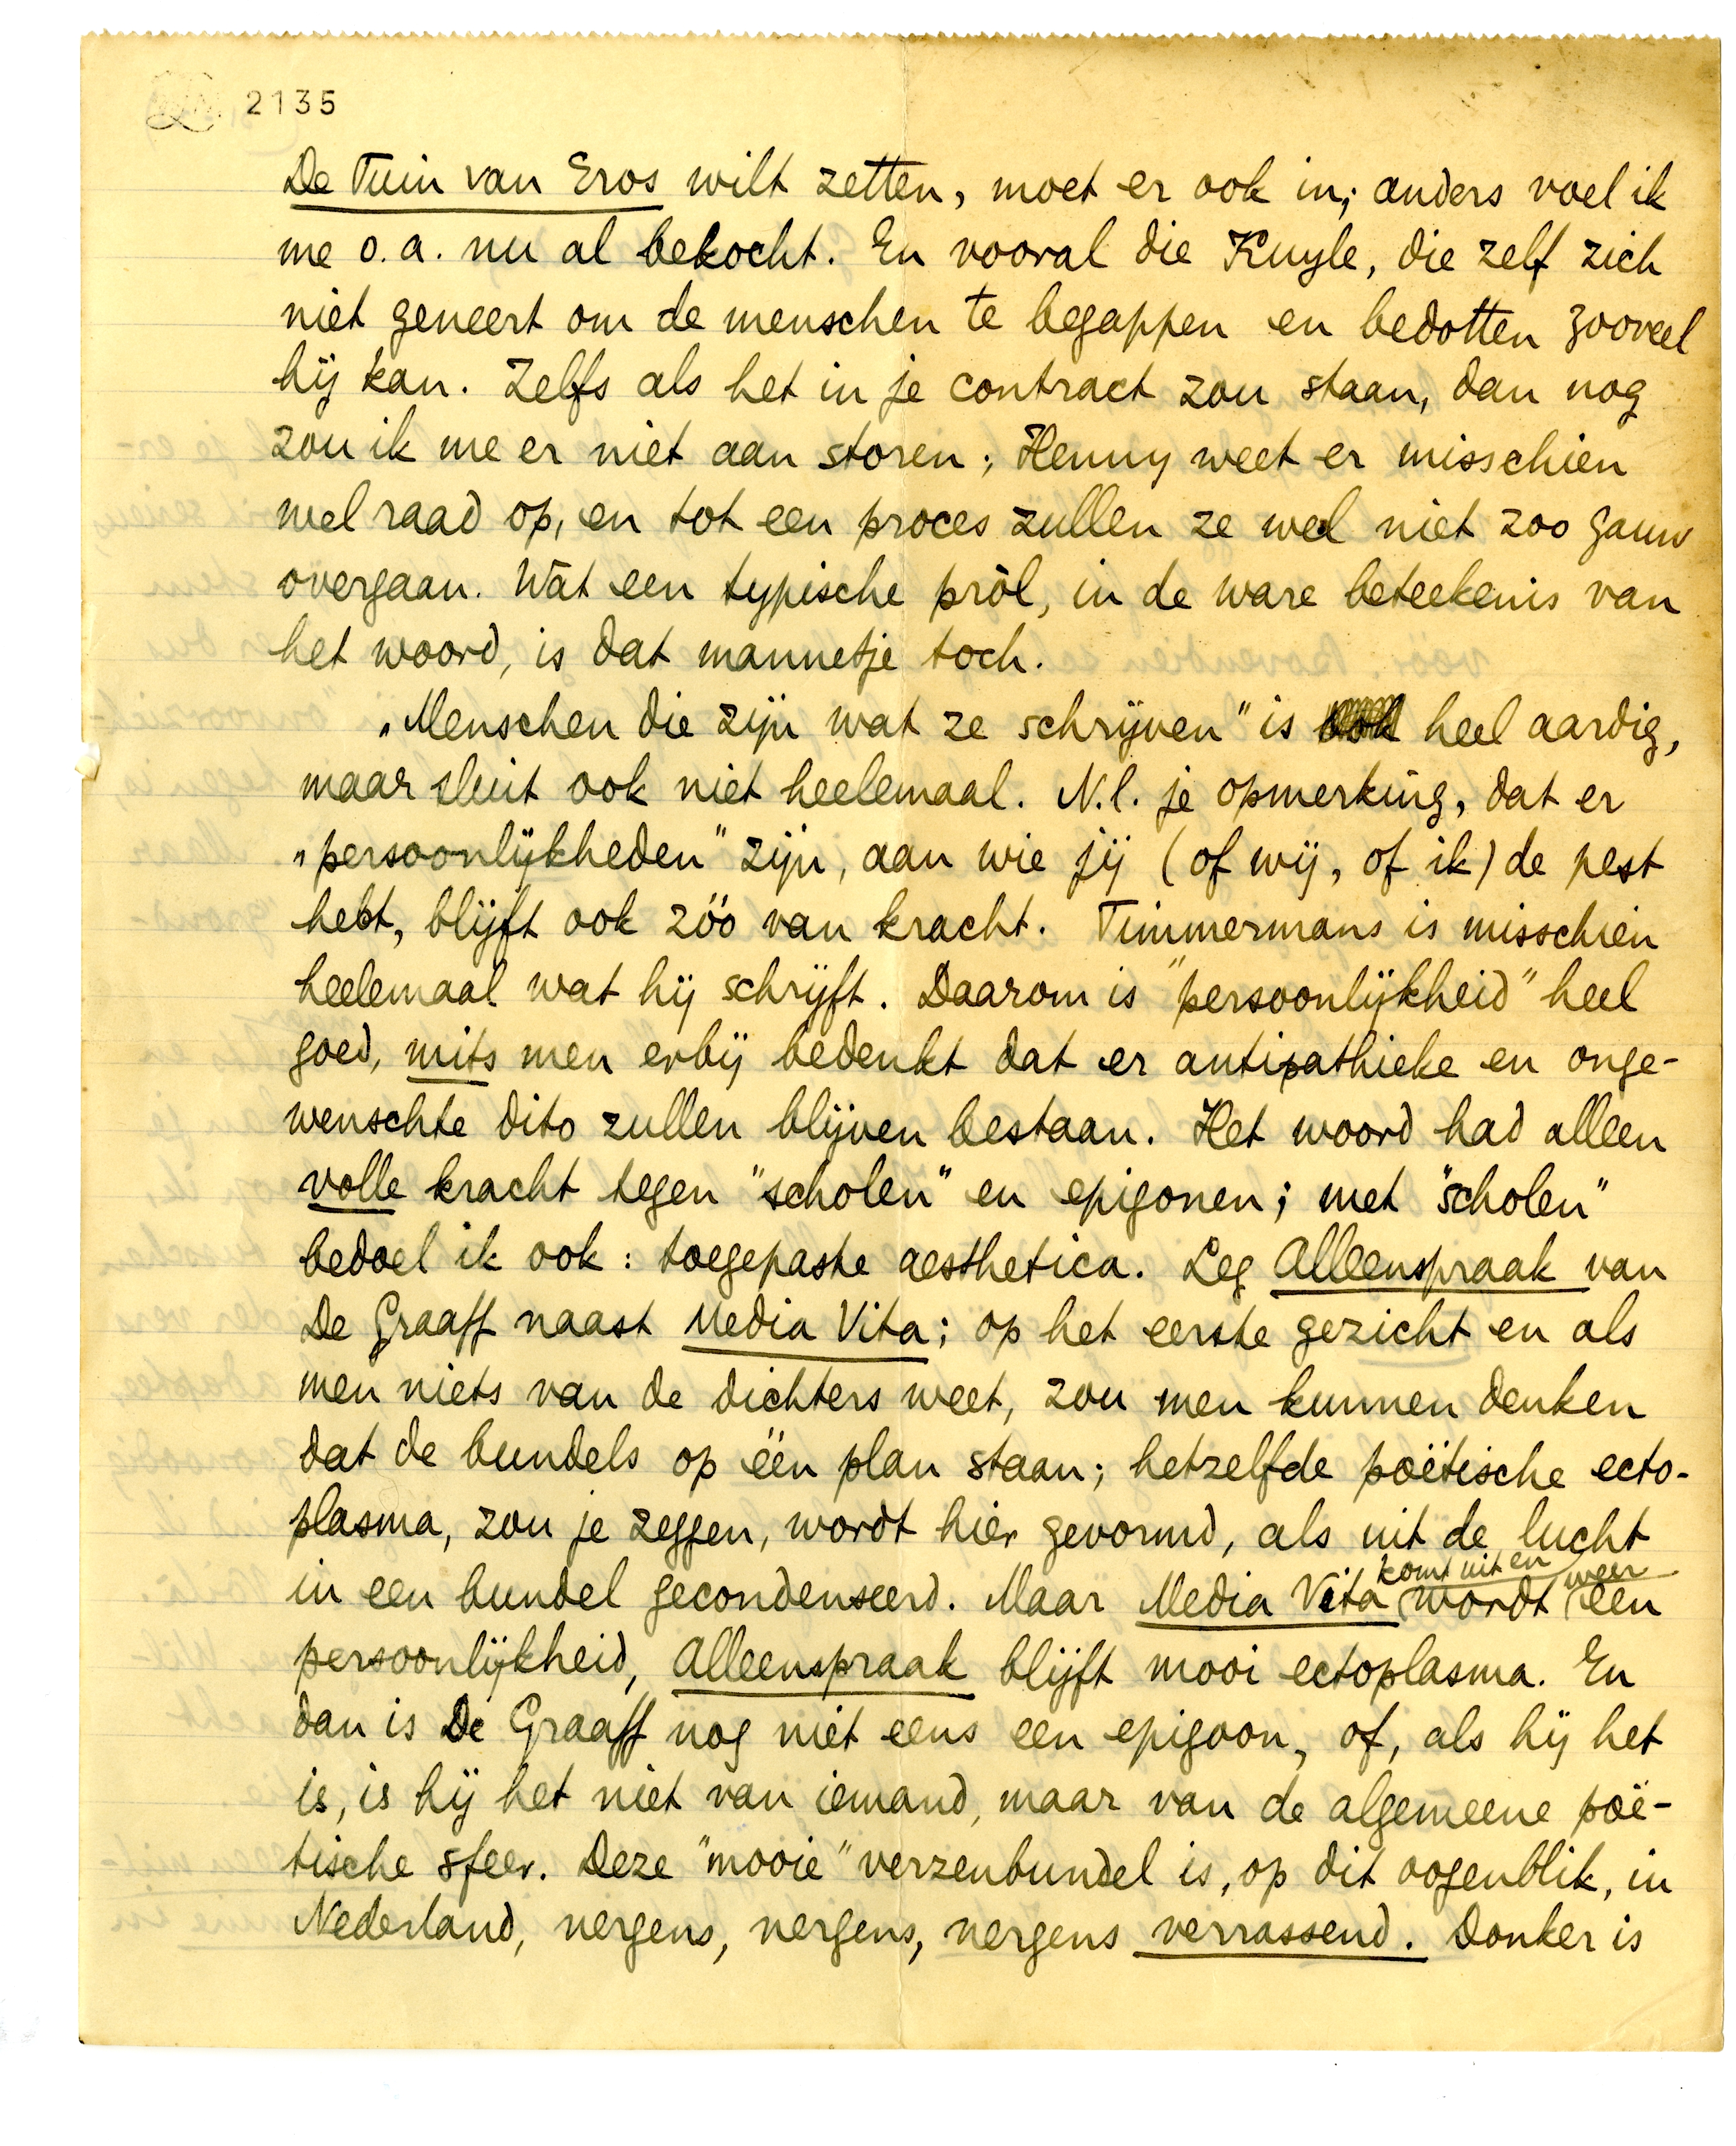 2135
De Tuin van Eros wilt zetten, moet er ook in; anders voel ik
me o.a. nu al bekocht. En vooral die Kuyle, die zelf zich
niet geneert om de menschen te begappen en bedotten zooveel
hij kan. Zelfs als het in je contract zou staan, dan nog
zou ik me er niet aan storen; Henny weet er misschien
wel raad op, en tot een proces zullen ze wel niet zoo gauw
overgaan. Wàt een typische pròl, in de ware beteekenis van
het woord, is dat mannetje toch.
„Menschen die zijn wat ze schrijven" is heel aardig,
maar sluit ook niet heelemaal. N.l. je opmerking, dat er
„persoonlijkheden" zijn, aan wie jij (of wij, of ik) de pest
hebt, blijft ook zóó van kracht. Timmermans is misschien
heelemaal wat hij schrijft. Daarom is "persoonlijkheid" heel
goed, mits men erbij bedenkt dat er antipathieke en onge-
wenschte dito zullen blijven bestaan. Het woord had alleen
volle kracht tegen "scholen" en epigonen; met "scholen"
bedoel ik ook: toegepaste aesthetica. Leg Alleenspraak van
De Graaff naast Media Vita; op het eerste gezicht en als
men niets van de dichters weet, zou men kunnen denken
dat de bundels op één plan staan; hetzelfde poëtische ecto-
plasma, zou je zeggen, wordt hier gevormd, als uit de lucht
in een bundel gecondenseerd. Maar Media Vita komt uit en wordt weer een
persoonlijkheid, Alleenspraak blijft mooi ectoplasma. En
dan is De Graaff nog niet eens een epigoon, of, als hij het
is, is hij het niet van iemand, maar van de algemeene poë-
tische sfeer. Deze "mooie" verzenbundel is, op dit oogenblik, in
Nederland, nergens, nergens, nergens verrassend. Donker is